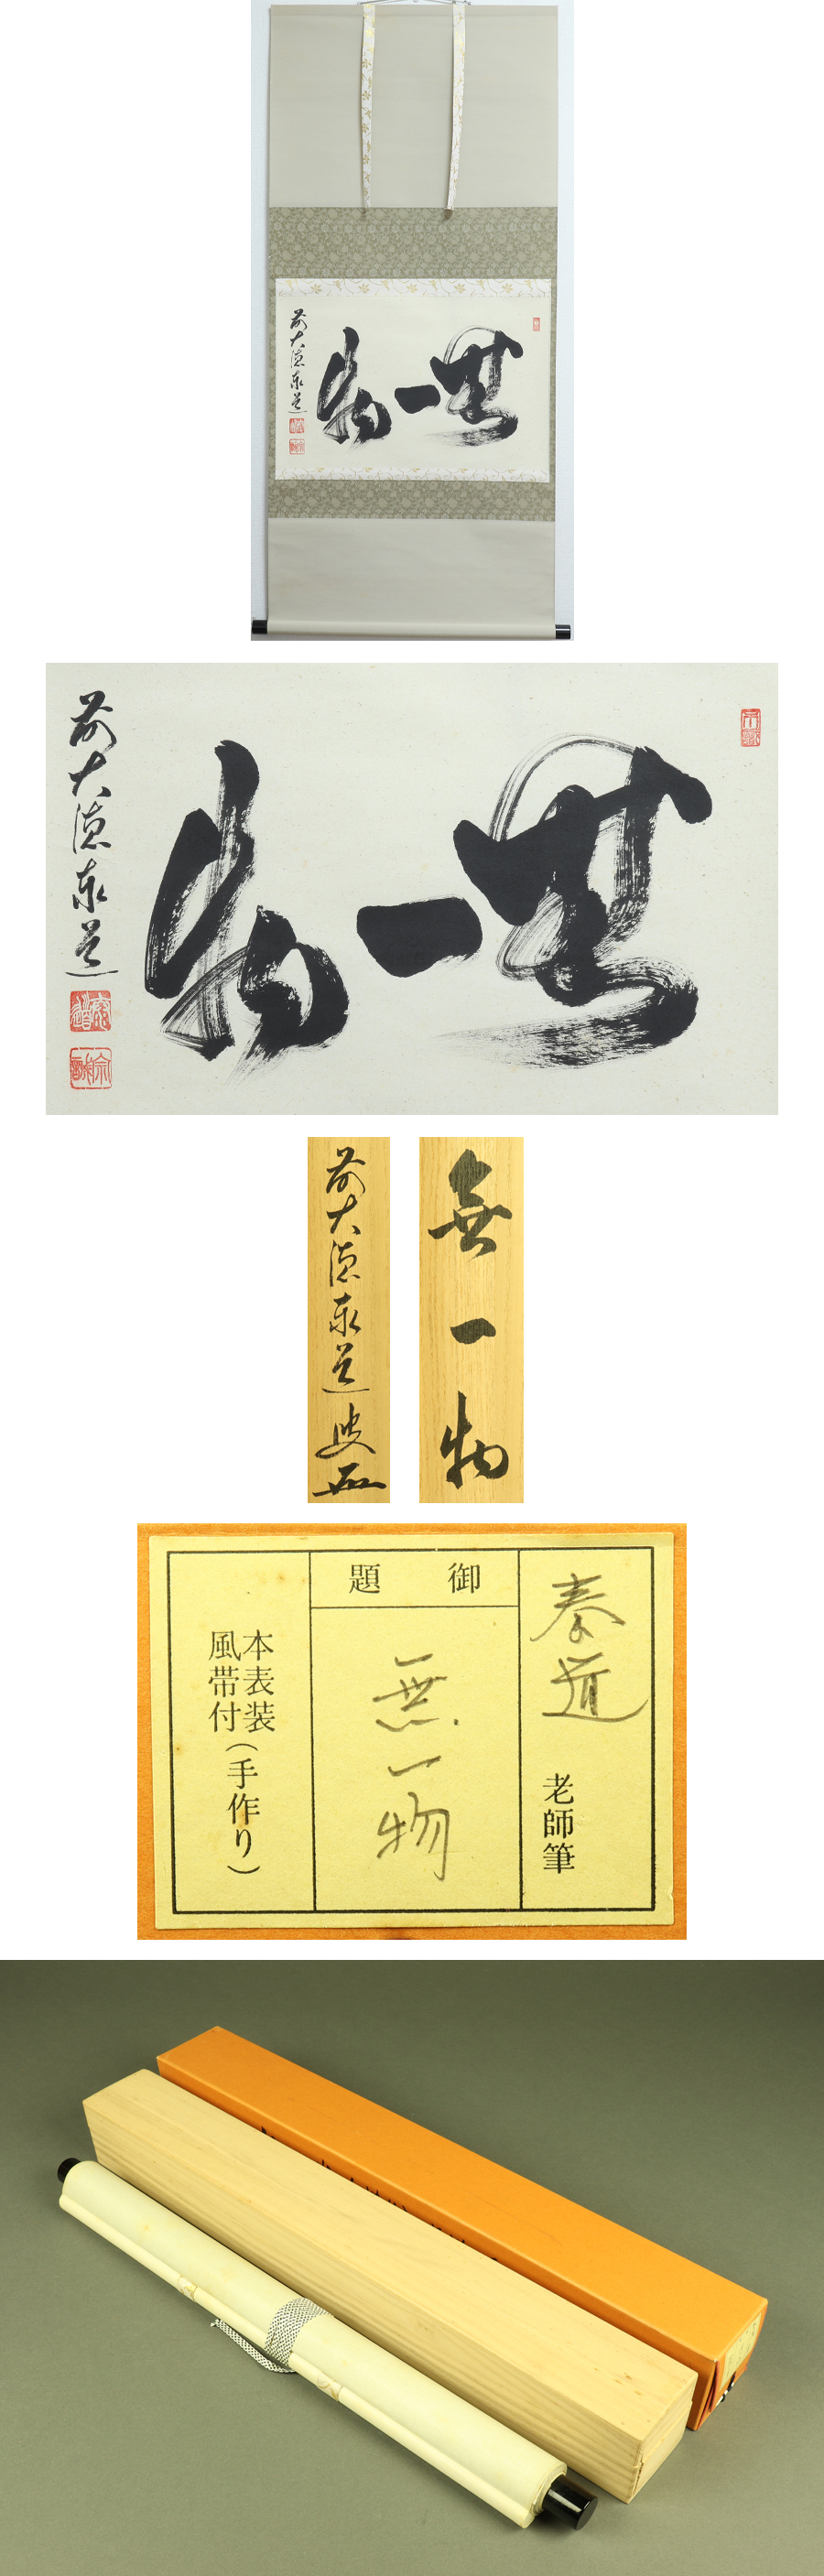 無一物
前大徳泰道
無一物
前大徳泰道
泰道
無一物
前大徳泰道
泰道 老師筆
御題
無一物
本表装
風帯付
(手作り)